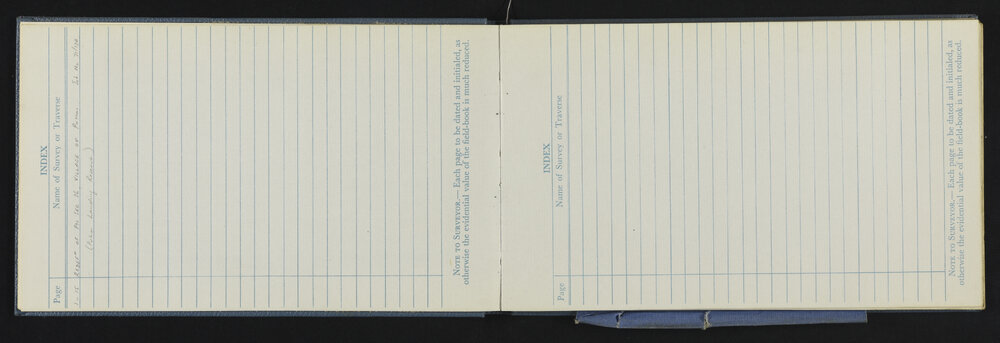 INDEX
Page
Name of Survey or Traverse
of Pt Sec 16, VILLAGE OF
NOTE TO SURVEYOR.— Each page to be dated and initialed, as
otherwise the evidential value of the field-book is much reduced.
INDEX
Page
Name of Survey or Traverse
NOTE TO SURVEYOR.— Each page to be dated and initialed, as
otherwise the evidential value of the field-book is much reduced.